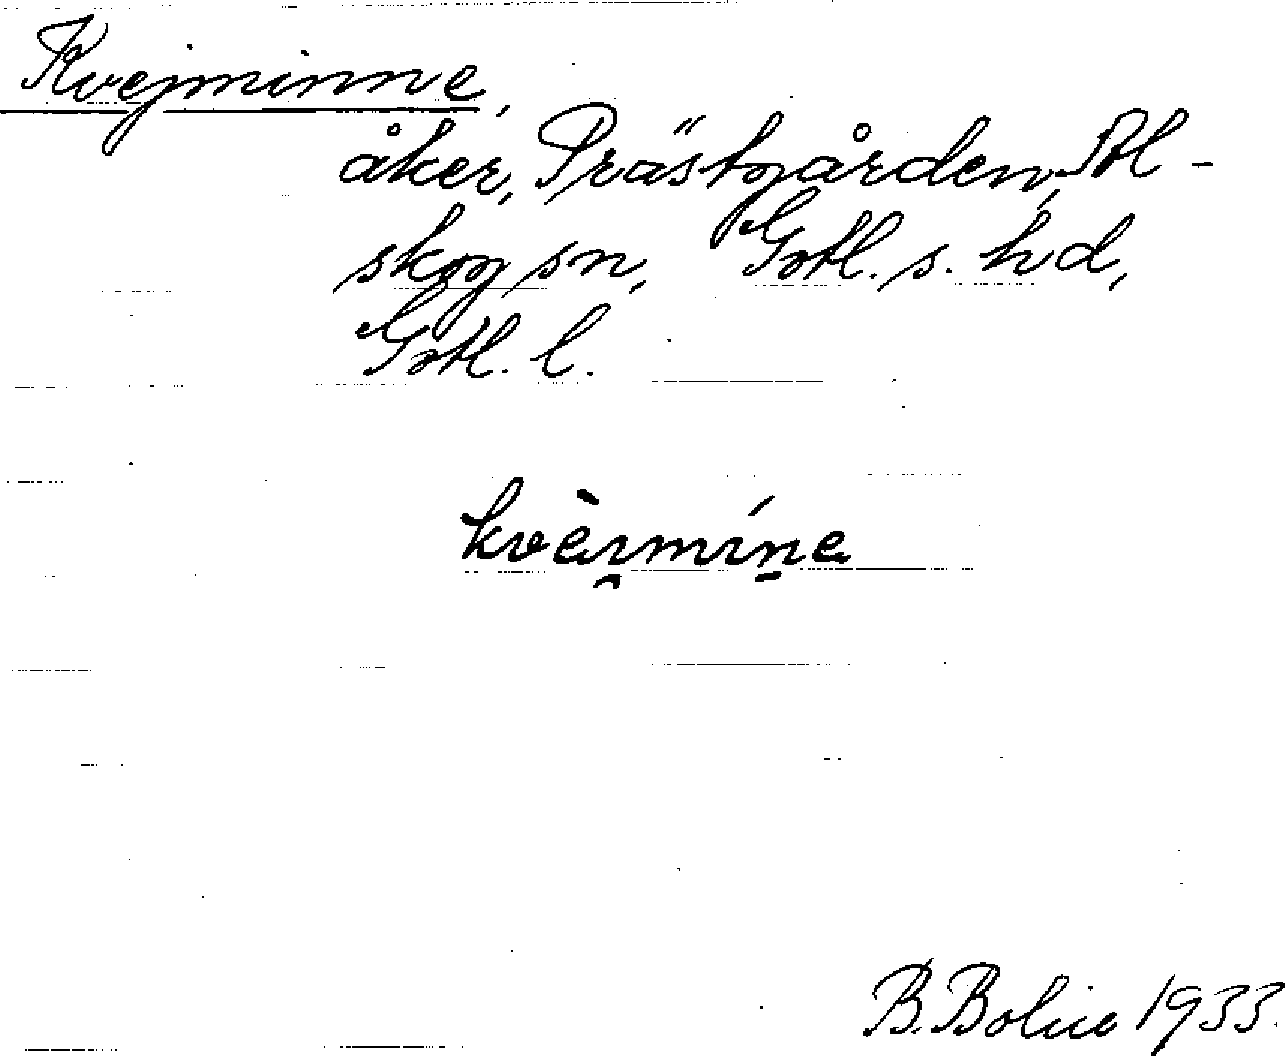 Kvejminne,
åker, Prästgården, Stl-
skog sn, Gotl. s. hd,
Gotl. l.
kvèi̯míṉe
B. Bolin 1933.